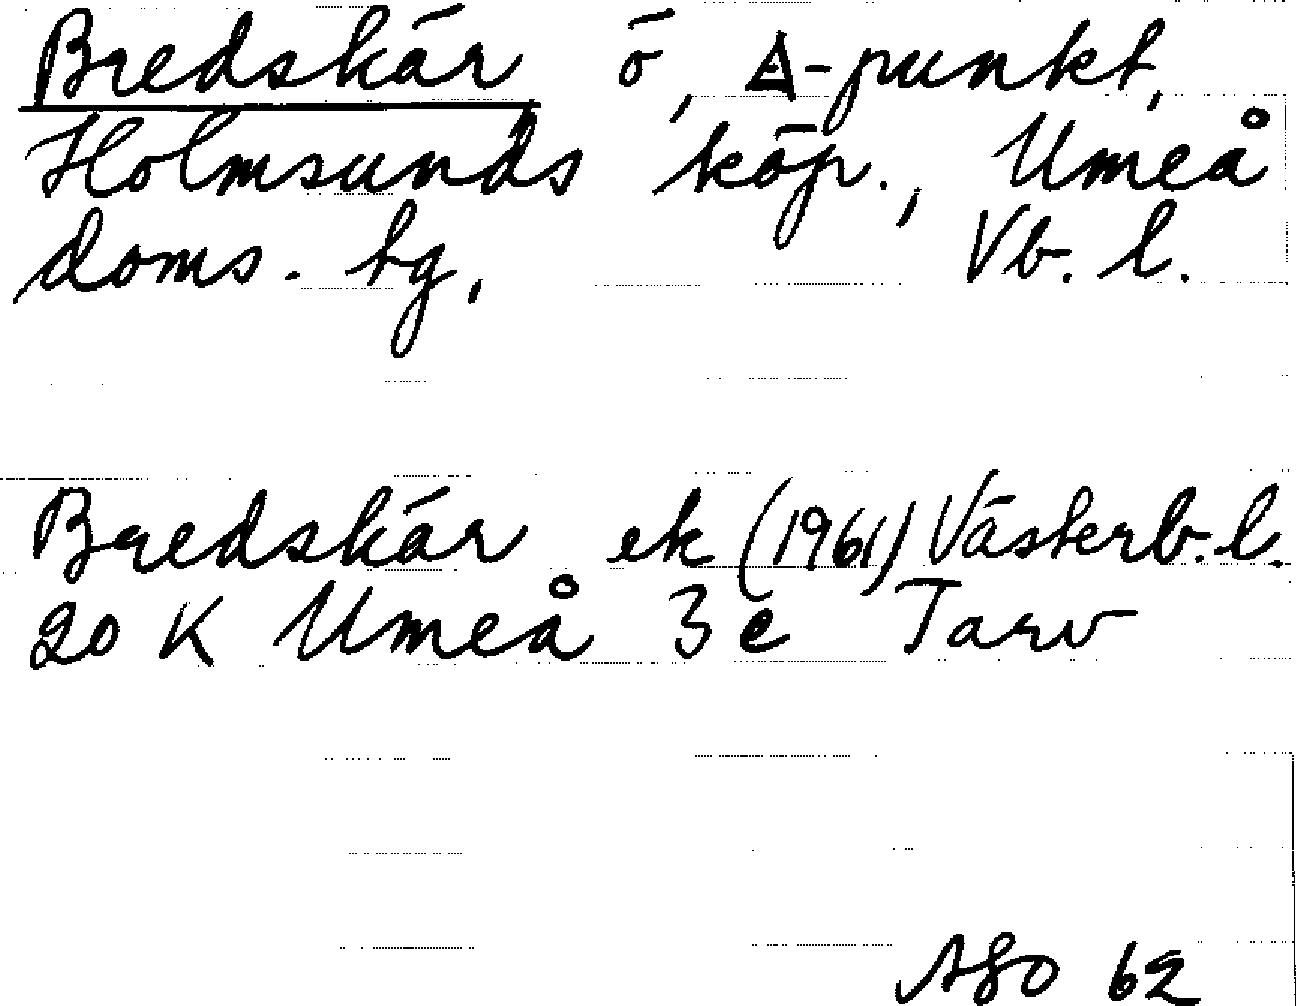 Bredskär ö, Δ-punkt,
Holmsunds köp., Umeå
doms. hg, Vb. l.
Bredskär ek (1961) Västerb. l.
20 K Umeå 3 c Tarv
62